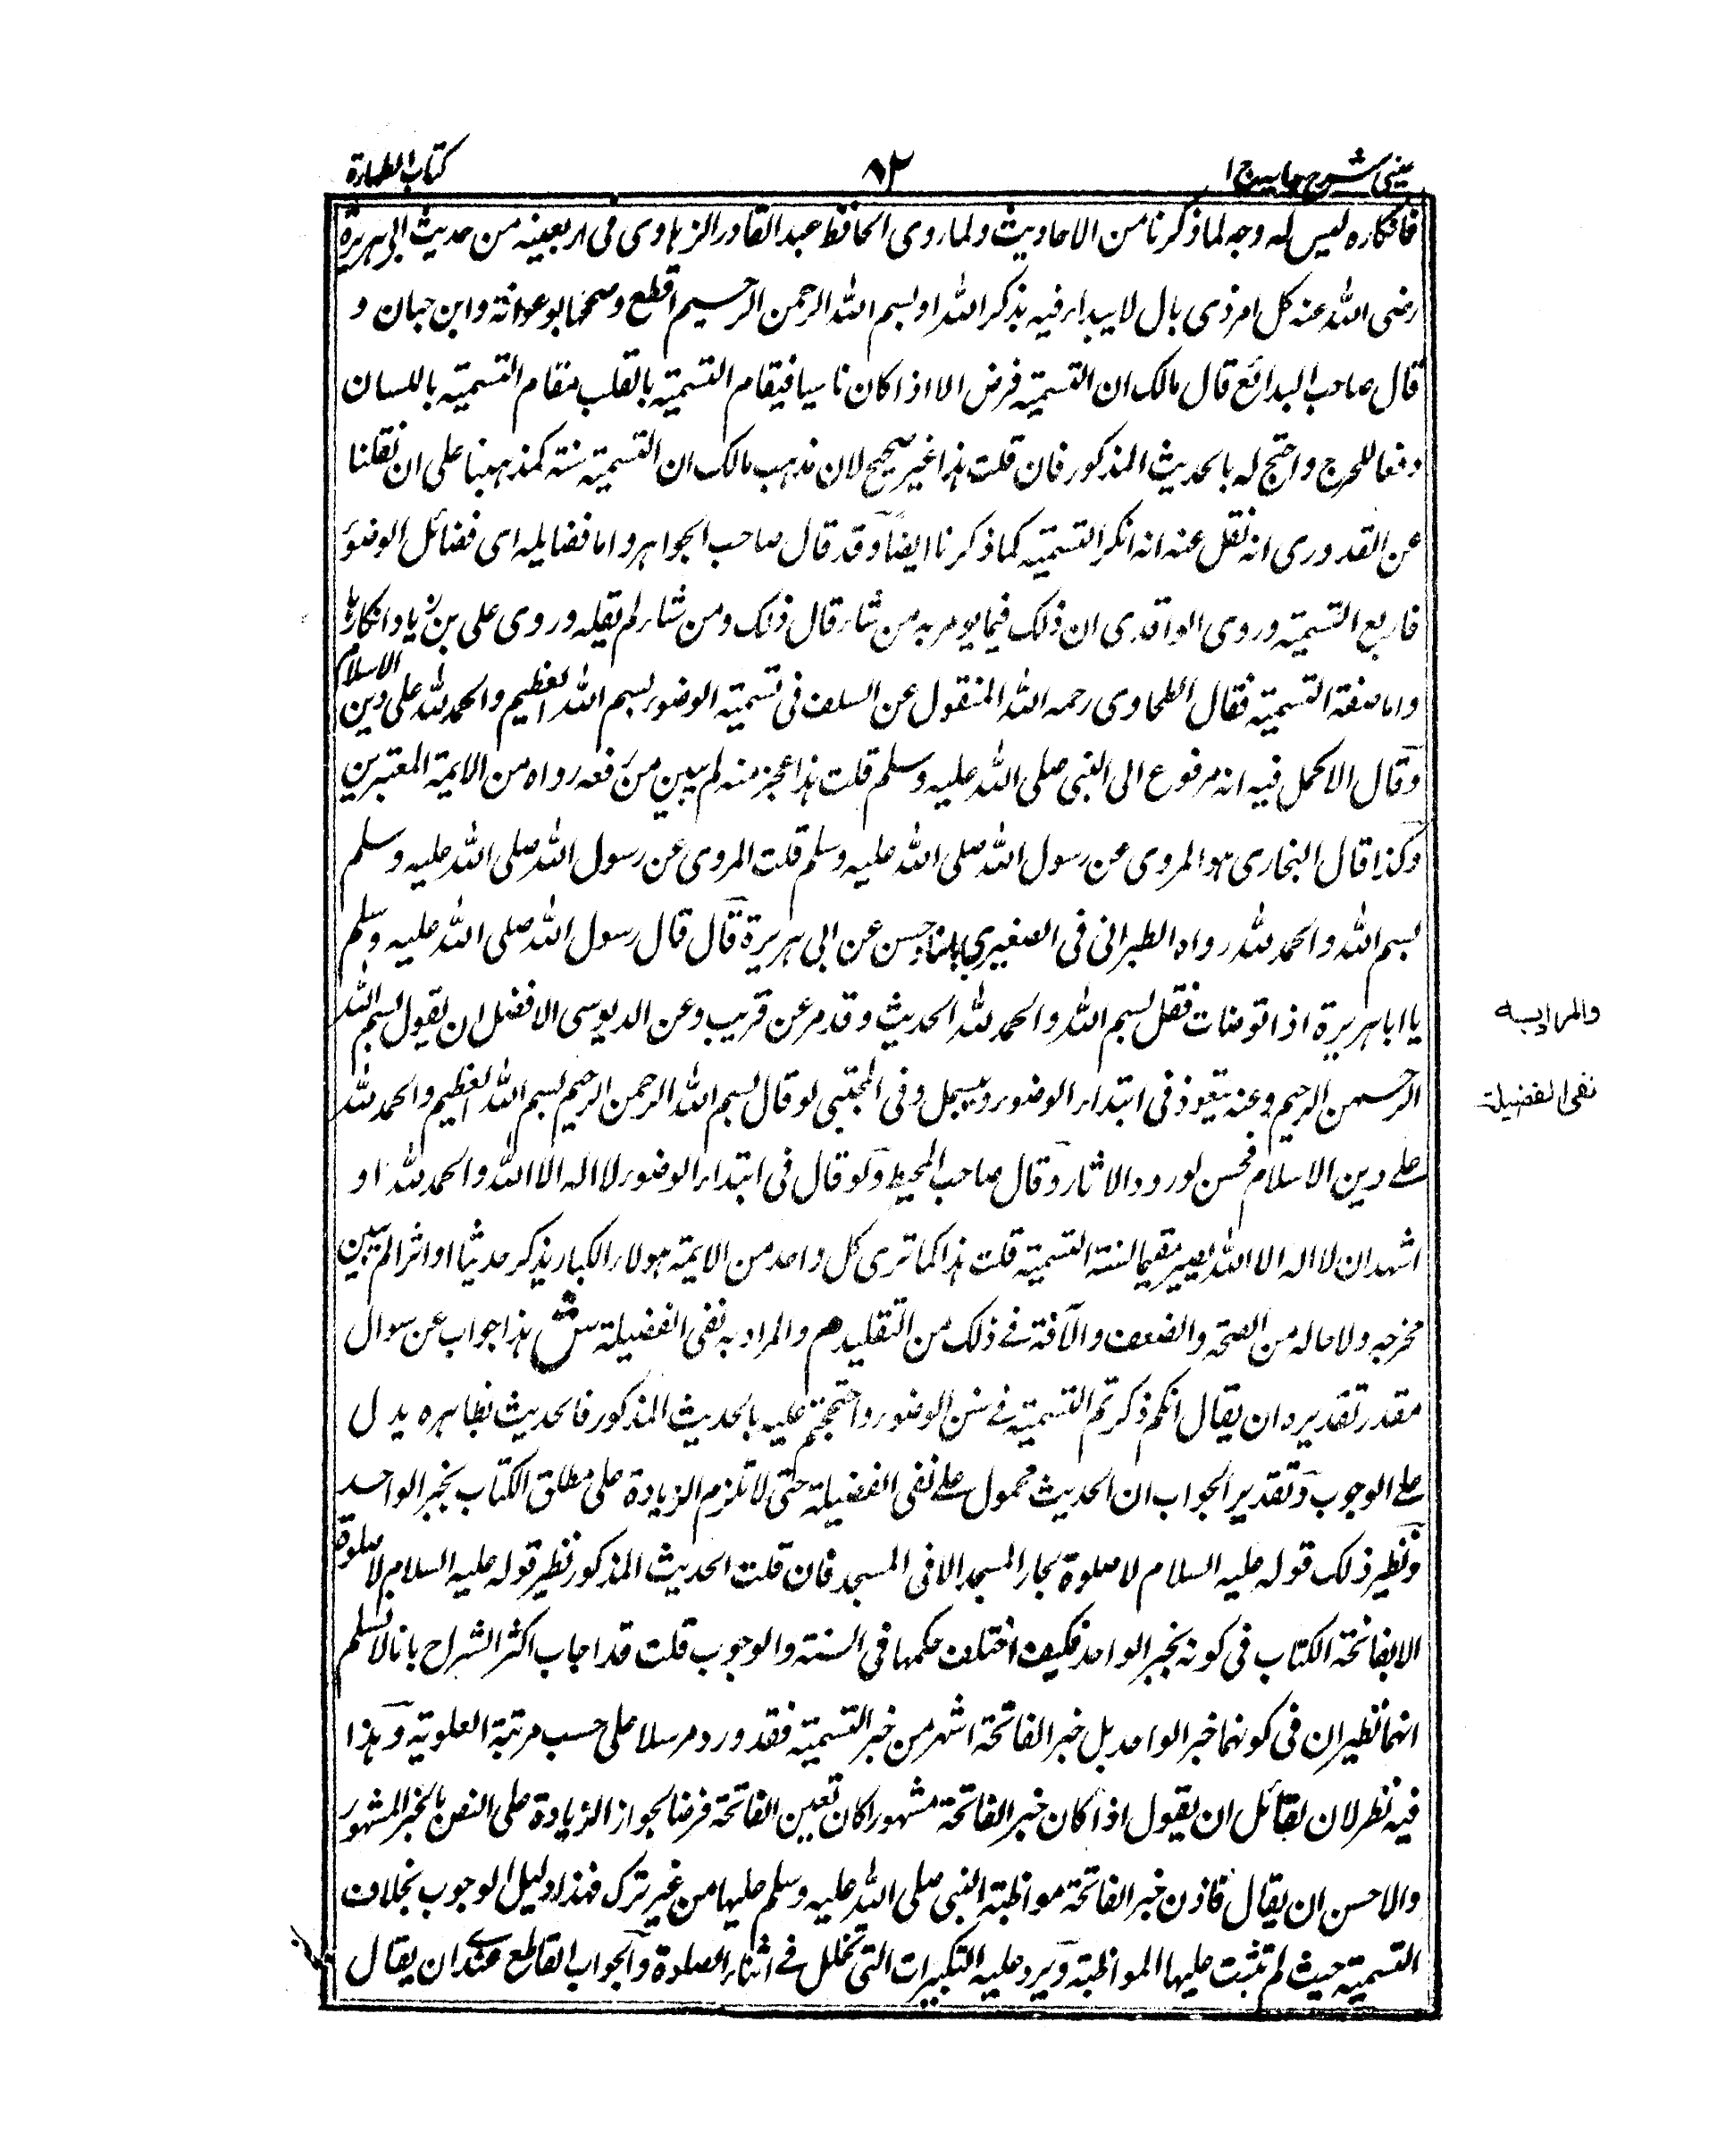 عینی شرح هدایہ ج ا
۸۲
کتاب الطهارة
فانکاره لیس له وجه لما ذکرنا من الاحادیث ولما روی الحافظ عبد القادر الرهاوی فی اربعینه من حدیث ابی هریرة
رضی الله عنه کل امر ذی بال لا یبداء فیه بذکر الله او بسم الله الرحمن الرحیم اقطع وصححها ابو عوانة وابن حبان و
قال صاحب البدائع قال مالک ان التسمیة فرض الا اذا کان ناسیا فیقام التسمیة بالقلب مقام التسمیة باللسان
دفعا للحرج واحتج له بالحدیث المذکور فان قلت هذا غیر صحیح لان مذهب مالک ان التسمیة سنة کمذهبنا علی ان نقلنا
عن القدوری انه نقل عنه انه انکر التسمیة کما ذکرنا ایضا وقد قال صاحب الجواهر واما فضایله ای فضائل الوضوء
فاربع التسمیة وروی الواقدی ان ذلک فیما یومر به من شاء قال ذلک ومن شاء لم یقله وروی علی بن زیاد انکارها
واما صفة التسمیة فقال الطحاوی رحمه الله المنقول عن السلف فی تسمیة الوضوء بسم الله العظیم والحمد لله علی دین الاسلام
وقال الاکمل فیه انه مرفوع الی النبی صلی الله علیه وسلم قلت هذا عجز منه لم یبین من رفعه رواه من الایمة المعتبرین
وکذا قال البخاری هو المروی عن رسول الله صلی الله علیه وسلم قلت المروی عن رسول الله صلی الله علیه وسلم
بسم الله والحمد لله رواه الطبرانی فی الصغیر باسناد حسن عن ابی هریرة قال قال رسول الله صلی الله علیه وسلم
یا ابا هریرة اذا توضات فقل بسم الله والحمد لله الحدیث وقد مر عن قریب وعن الدبوسی الافضل ان یقول بسم الله
الرحمن الرحیم وعنه یتعوذ فی ابتداء الوضوء ویبسمل وفی المجتبی لو قال بسم الله الرحمن الرحیم بسم الله العظیم والحمد لله
علے دین الاسلام فحسن لورود الاثار وقال صاحب المحیط ولو قال فی ابتداء الوضوء لا اله الا الله والحمد لله او
اشهد ان لا اله الا الله یصیر مقیما لسنة التسمیة قلت هذا کما تری کل واحد من الایمة هولاء الکبار یذکر حدیثا او اثرا لم یبین
مخرجه ولا حاله من الصحة والضعف والآفة فے ذلک من التقلید م والمراد به نفی الفضیلة ش هذا جواب عن سوال
مقدر تقدیره ان یقال انکم ذکرتم التسمیة فے سنن الوضوء واحتججتم علیه بالحدیث المذکور فالحدیث بظاهره یدل
علے الوجوب وتقدیر الجواب ان الحدیث محمول علے نفی الفضیلة حتی لا تلزم الزیادة علی مطلق الکتاب بخبر الواحد
ونظیر ذلک قوله علیه السلام لا صلوة لجار المسجد الا فی المسجد فان قلت الحدیث المذکور نظیر قوله علیه السلام لا صلوة
الا بفاتحة الکتاب فی کونه بخبر الواحد فکیف اختلف حکمها فی السنة والوجوب قلت قد اجاب اکثر الشراح بانا لا نسلم
انهما نظیران فی کونهما خبر الواحد بل خبر الفاتحة اشهر من خبر التسمیة فقد ورد مرسلا علی حسب مرتبة العلویة وهذا
فیه نظر لان لقائل ان یقول اذا کان خبر الفاتحة مشهورا کان تعیین الفاتحة فرضا لجواز الزیادة علی النص بالخبر المشهور
والاحسن ان یقال قارن خبر الفاتحة مواظبة النبی صلی الله علیه وسلم علیها من غیر ترک فهذا دلیل الوجوب بخلاف
التسمیة حیث لم تثبت علیها المواظبة ویرد علیه التکبیرات التی تخلل فے اثناء الصلوة والجواب القاطع عندے ان یقال
والمراد به
نفی الفضیلة